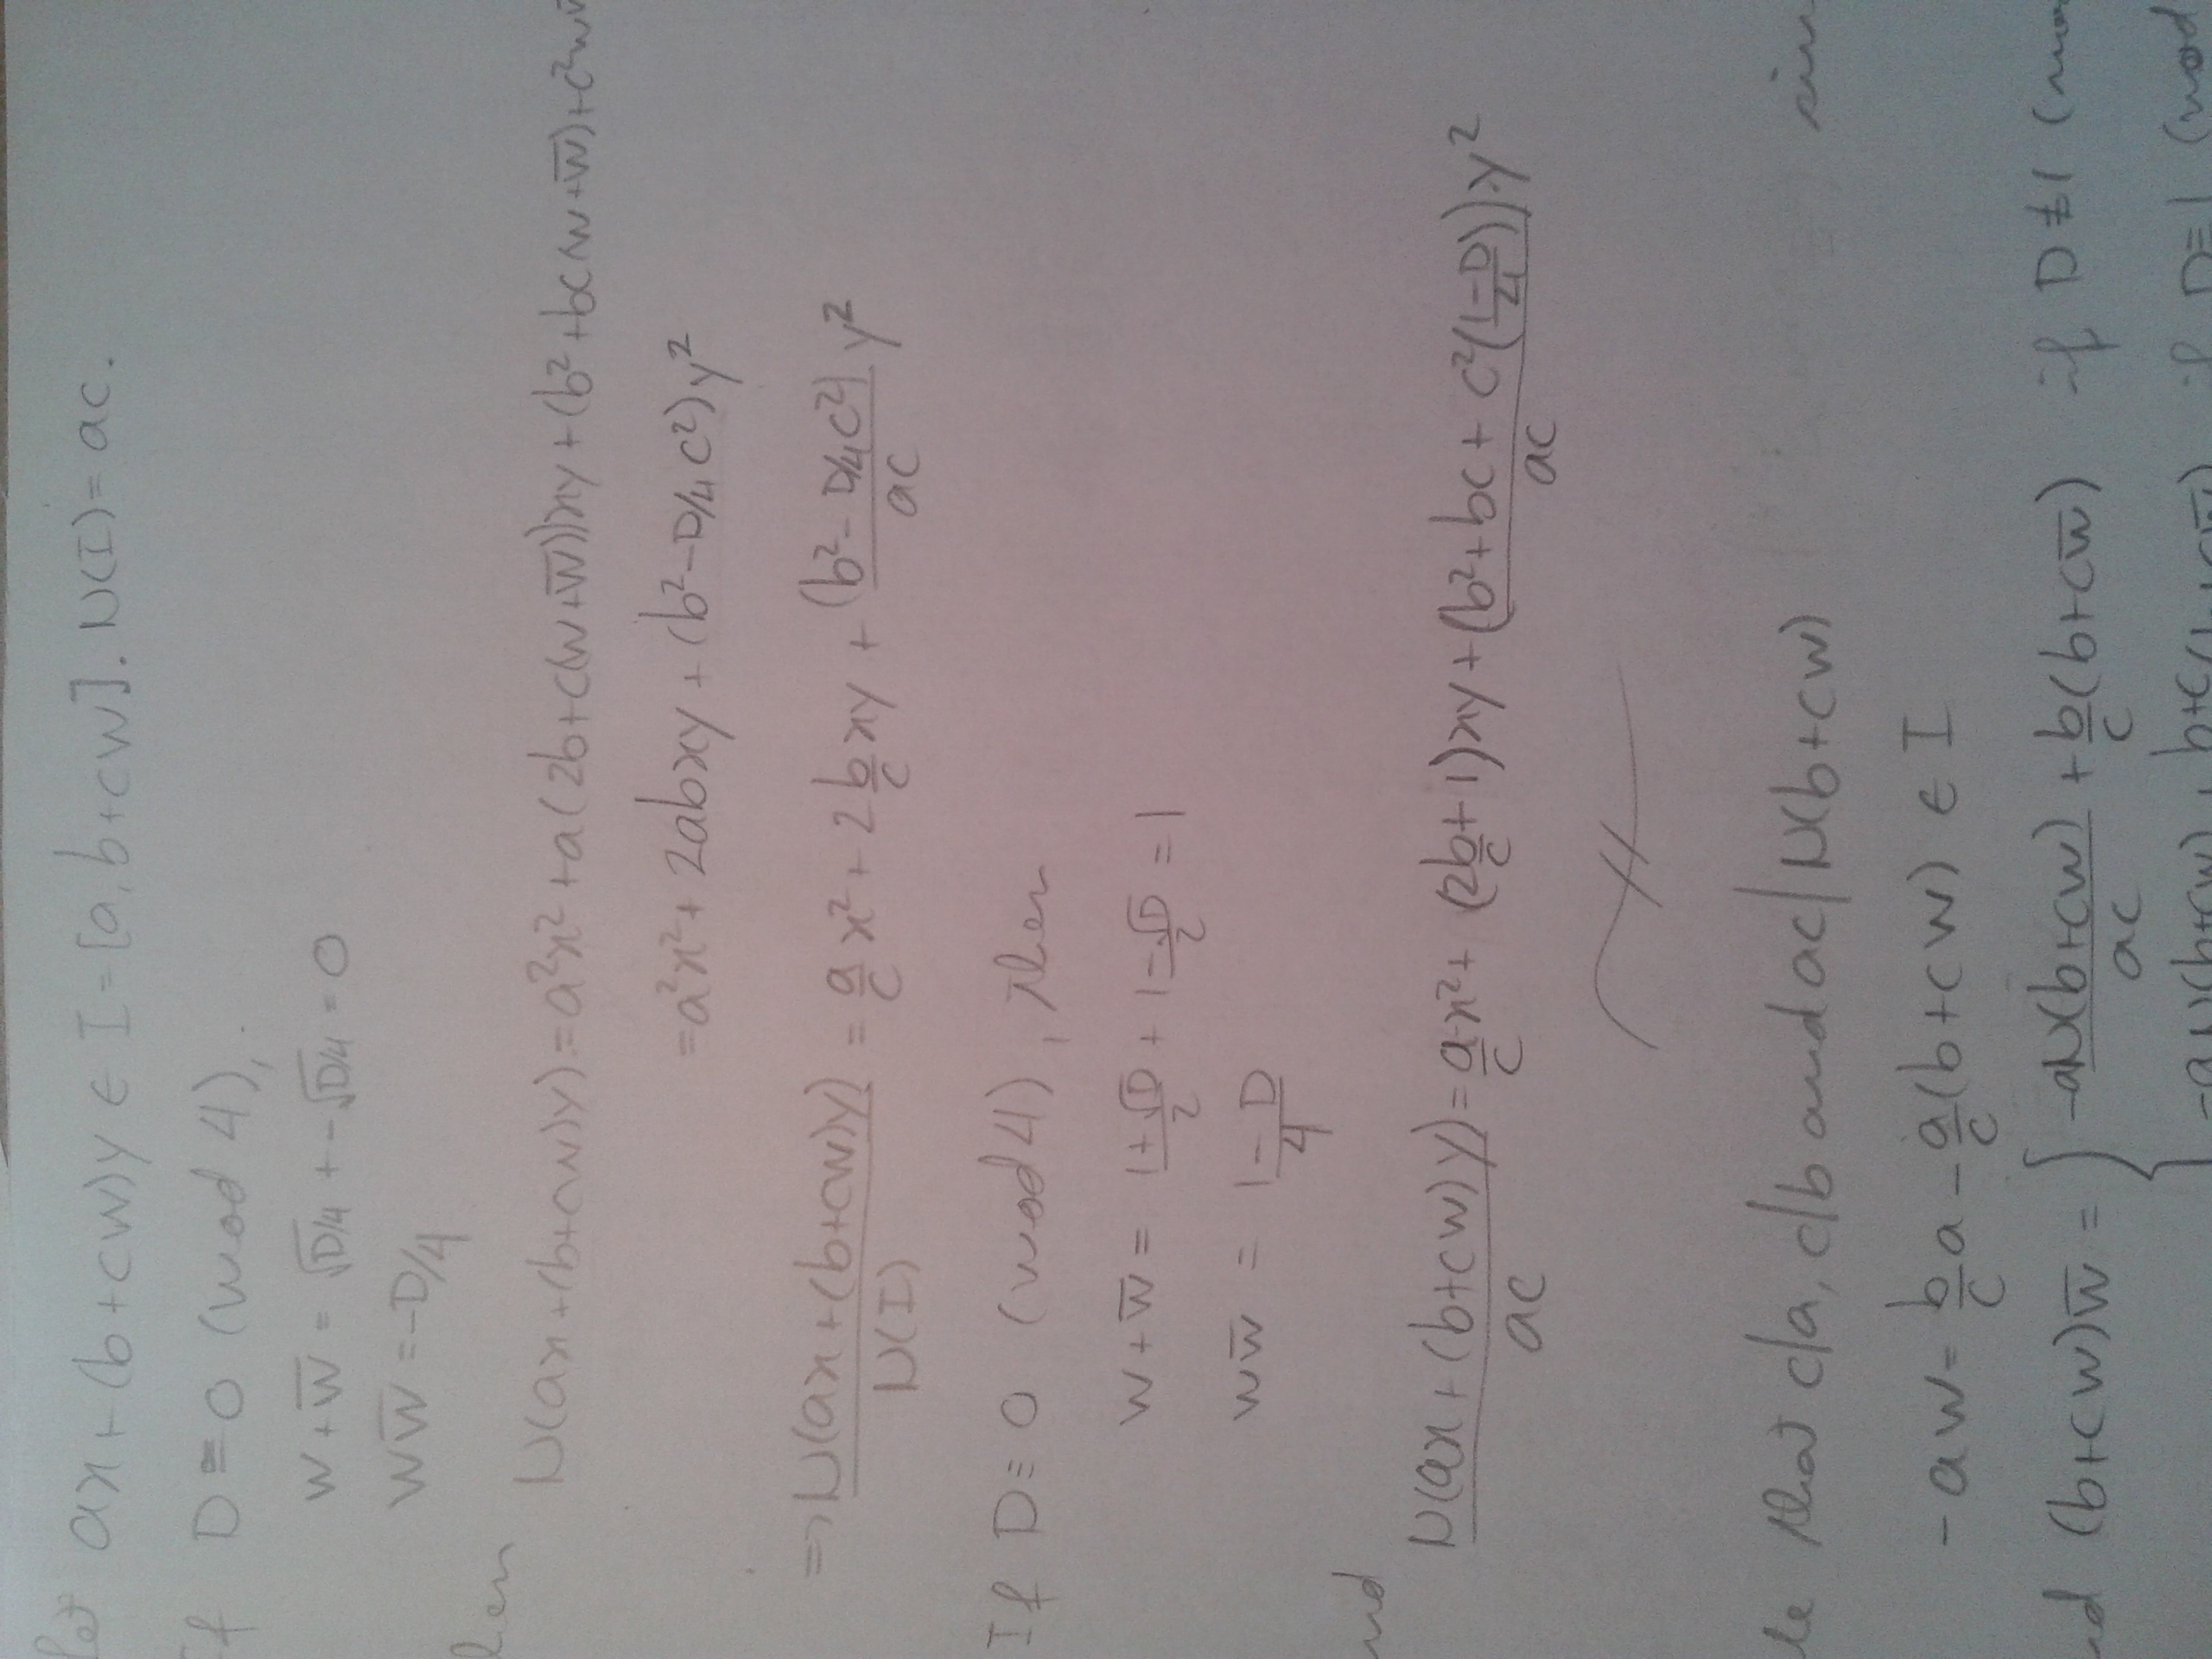 Let ax+(b+cw)y ∈ I=[a,b+cw]. N(I)=ac.
If D≡0 (mod 4),
w+w̅ = √D/4 + -√D/4 = 0
ww̅ = -D/4
N(ax+(b+cw)y) = a²x²+a(2b+c(w+w̅))xy+(b²+bc(w+w̅)+c²ww̅
= a²x²+2abxy+(b²-D/4c²)y²
=> N(ax+(b+cw)y)/N(I) = a/c x² + 2 b/c xy + (b²-D/4c²)/ac y²
If D=0 (mod 4), then
w+w̅ = 1+√D/2 + 1-√D/2 = 1
ww̅ = 1-D/4
and
N(ax+(b+cw)y)/ac = a/c x² + (2b/c+1)xy + (b²+bc+c²(1-D/4))/ac y²
that c|a, c|b and ac|N(b+cw)
-aw = b/c a - a/c (b+cw) ∈ I
and (b+cw)w̅ = { -aN(b+cw)/ac + b/c(b+cw̅) if D≢1
if D≡1 (mod